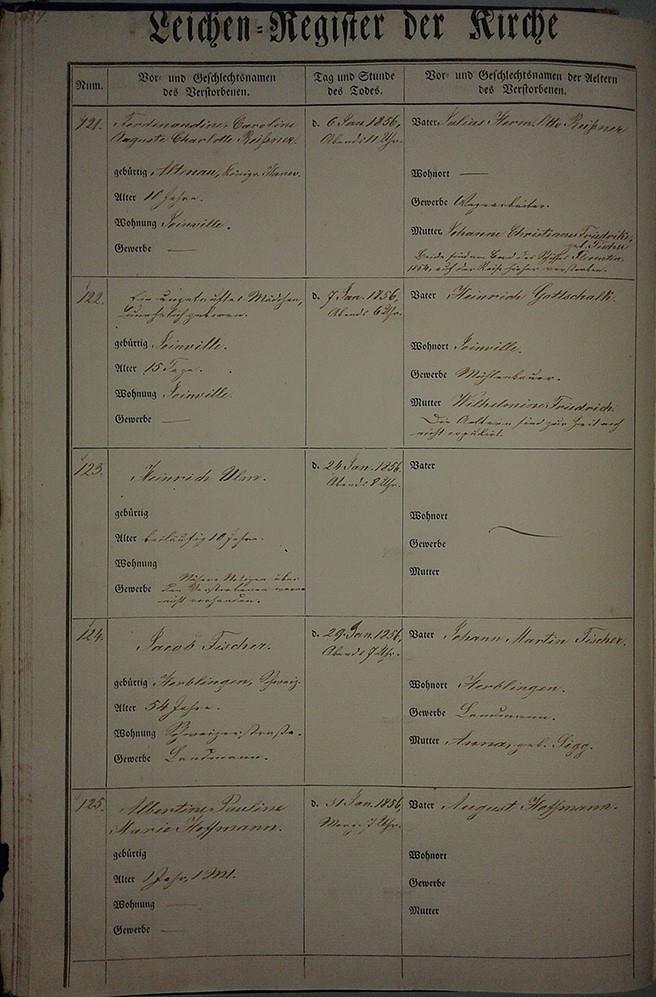 Leichen-Register der Kirche
Num.
Vor- und Geschlechtsnamen
des Verstorbenen.
Tag und Stunde
des Todes.
Vor- und Geschlechtsnamen der Aeltern
des Verstorbenen.
121.
Ferdinandine Caroline
Auguste Charlotte Reißner.
gebürtig Altenau, Königr. Hanov.
Alter 10 Jahre.
Wohnung Joinville.
Gewerbe —
d. 6 Jan. 1856,
Abends 11 Uhr.
Vater Julius Herm. Otto Reißner
Wohnort —
Gewerbe Wegearbeiter.
Mutter Johanne Christiane Friedrike,
geb.
Beide sind am Bord des Schiffes Florentin,
1854, auf der Reise hieher verstorben.
122.
Ein ungetauftes Mädchen,
unehelich geboren.
gebürtig Joinville.
Alter 15 Tage.
Wohnung Joinville.
Gewerbe —
d. 7 Jan. 1856,
Abends 6 Uhr.
Vater Heinrich Gottschalk.
Wohnort Joinville.
Gewerbe Mühlenbauer.
Mutter Wilhelmine Friedrich.
Die Aeltern sind zur Zeit noch
nicht copulirt.
123.
Heinrich Ulm.
gebürtig
Alter beiläufig 10 Jahre.
Wohnung
Gewerbe
Nähere Notizen über
den Verstorbenen waren
nicht vorhanden.
d. 24 Jan. 1856.
Abends 8 Uhr.
Vater
Wohnort
Gewerbe
Mutter
124.
Jacob Fischer.
gebürtig Herblingen, Schweiz.
Alter 54 Jahre.
Wohnung Schweizerstraße.
Gewerbe Landmann.
d. 29 Jan. 1856,
Abends 7 Uhr.
Vater Johann Martin Fischer.
Wohnort Herblingen.
Gewerbe Landmann.
Mutter Anna, geb. Sigg.
125.
Albertine Pauline
Marie Hoffmann.
gebürtig
Alter 1 Jahr, 1 Mt.
Wohnung —
Gewerbe —
d. 31 Jan. 1856,
Morg. 7 Uhr.
Vater August Hoffmann.
Wohnort
Gewerbe
Mutter